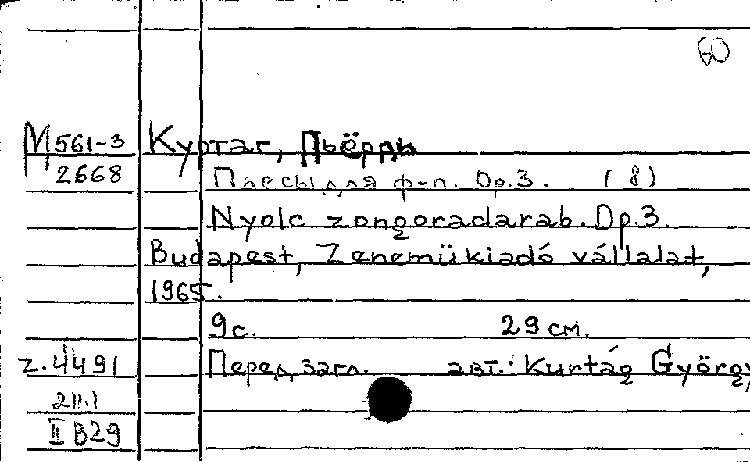 60
М561-3 Куртаг, Дьёрдь
2668 Пьесы для ф-п. Op.3. (8)
Nyolc zongoradarab. Op.3.
Budapest, Zeneműkiadó vállalat,
1965.
9с. 29см.
Z.4491 Перед загл. авт.: Kurtág György
II B29